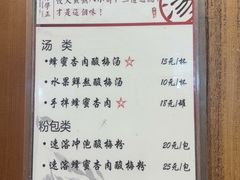 才是这个味！
汤
汤 类
蜂蜜杏肉酸梅汤☆ 15元/杯
水果鲜熬酸梅汤 18元/杯
手拌蜂蜜杏肉☆ 18元/罐
粉包类
速溶冲泡酸梅粉 20元/包
速溶蜂蜜杏肉酸梅粉 25元/包